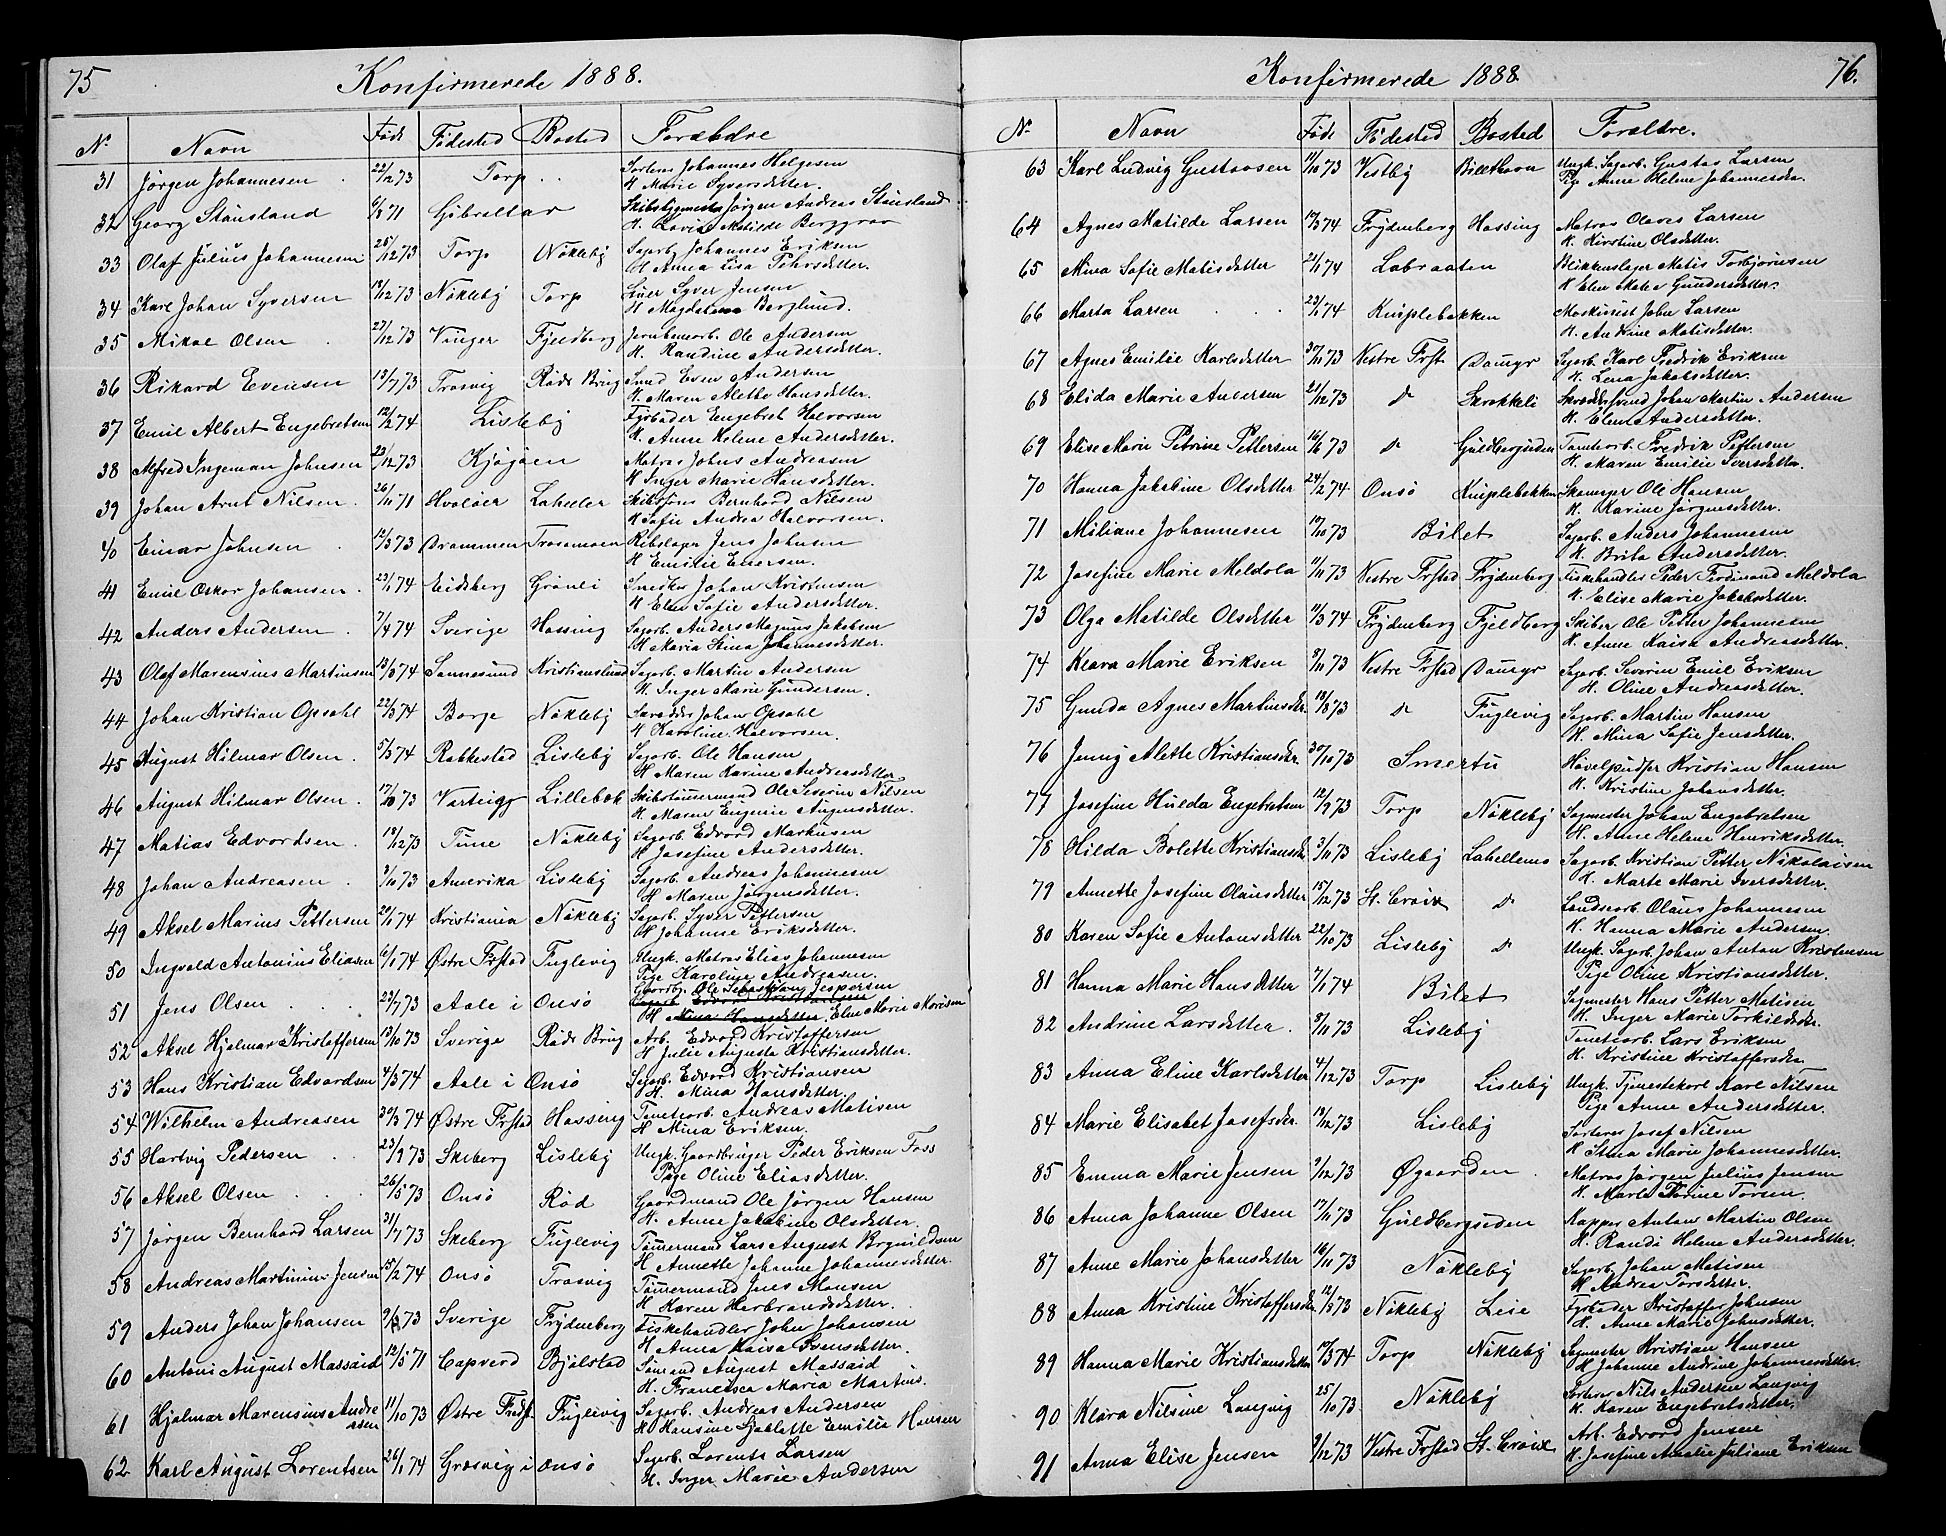 75 Konfirmerede 1888.
No Navn Født Fødested Bosted Forældre
31 Jörgen Johannesen 22/12 73 Torp Sorterer Johannes Helgesen
H Marie Syversdetter.
32 Georg Stausland 6/8 71 Gibraltar Skibsbygmester Jörgen Andreas Stausland
H. Lovise Matilde Berggrav
33 Olaf Julius Johannesen 25/12 73 Torp Nökleby Sagarb. Johannes Eriksen
H Anna Lisa Pehrsdetter.
34 Karl Johan Syversen 19/12 73 Nökleby Torp Syver Jensen
H Magdalena Berglund.
35 Mikal Olsen 27/12 73 Vinger Fjeldberg Jernbanearb. Ole Andersen
H. Randine Andersdetter.
36 Rikard Evensen 13/7 73 Trosvig Röds Brug Smed Even Andersen
H. Maren Alette Hansdetter.
37 Emil Albert Engebretsen 12/2 74 Lisleby Fyrböder Engebret Halvorsen
H. Anne Helene Andersdetter.
38 Alfred Ingeman Johnsen 23/12 73 Kjögöen Matros Johns Andreasen
H Inger Marie Hansdetter.
39 Johan Arnt Nilsen 26/11 71 Hvaløer Laheller Skibsförer Bernhard Nilsen
H Sofie Andrea Halvorsen.
40 Einar Johnsen 12/3 73 Drammen Trosemoen Rebslager Jens Johnsen
H Emilie Eilersen.
41 Emil Oskar Johansen 23/1 74 Eidsberg Grönli Snedker Johan Kristensen
H Elen Sofie Andersdetter.
42 Anders Andersen 7/4 74 Sverige Hassing Sagarb. Anders Magnus Jakobsen
H Maria Stina Johannesdetter.
43 Olaf Marensius Martinsen 13/3 74 Sannesund Kristianslund Sagarb. Martin Andersen
H. Inger Marie Gundersen.
44 Johan Kristian Opsahl 22/3 74 Borge Nökleby Skrædder Johan Opsahl
H Karoline Halvorsen.
45 August Hilmar Olsen 5/3 74 Rakkestad Lisleby Sagarb. Ole Hansen
H Maren Karine Andreasdetter
46 August Hilmar Olsen 17/10 73 Varteigg Lillebæk Skibstømmermand Ole Severin Nilsen
H. Maren Eugenie Augensdetter.
47 Matias Edvardsen 18/12 73 Tune Nökleby Sagarb. Edvard Markusen
H Josefine Andersdetter.
48 Johan Andreasen 3/10 73 Amerika Lisleby Sagarb. Andreas Johannesen
H Maren Jörgensdetter.
49 Aksel Marius Pettersen 21/1 74 Kristiania Nökleby Sagarb. Syver Pettersen
H Johanne Eriksdetter.
50 Ingvald Antonius Eliasen 6/1 74 Østre Frstad Fuglevig Ungk. Matros Elias Johannesen
Pige Karoline Andreasen.
51 Jens Olsen 23/7 73 Aale i Onsö Gaardbr. Ole Sebastian Jespersen
Sagarb Edvard Kristiansen
H Mina Hansdetter. Elen Marie Monsen
52 Aksel Hjalmar Kristoffersen 13/10 73 Sverige Röds Brug Arb. Edvard Kristoffersen
H Julie Augusta Kristiansdetter.
53 Hans Kristian Edvardsen 4/3 74 Aale i Onsö Sagarb. Edvard Kristiansen
H. Mina Hansdetter.
54 Wilhelm Andreasen 30/3 74 Østre Frstad Hassing Tomtearb. Andreas Matisen
H Mina Eriksen.
55 Hartvig Pedersen 23/9 73 Skeberg Lisleby Ungk. Gaardbruger Peder Eriksen Foss
Pige Oline Eliasdetter.
56 Aksel Olsen 26/5 73 Onsö Röd Gaardmand Ole Jörgen Hansen
H. Anne Jakobine Olsdetter.
57 Jörgen Bernhard Larsen 31/7 73 Skeberg Fuglevig Tømmermand Lars August Brynildsen
H Annette Johanne Johannesdetter.
58 Andreas Martinius Jensen 15/2 74 Onsö Trosvig Tømmermand Jens Monsen
H Karen Herbrandsdetter.
59 Anders Johan Johansen 9/3 73 Sverige Frydenberg Fiskehandler John Johansen
H Anna Kaisa Svensdetter.
60 Antoni August Massaid 12/5 71 Capverd Bjölstad Sömand August Massaid
H. Francisca Maria Martins.
61 Hjalmar Marensius Andreasen 11/10 73 Østre Fredst. Fuglevig Sagarb. Andreas Andersen
H Hansine Sjarlotte Emilie Hansen
62 Karl August Lorentsen 26/1 74 Græsvig i Onsö Sagarb. Lorents Larsen
H. Inger Marie Andersen
Konfirmerede 1888. 76.
No Navn Født Fødested Bosted Forældre.
63 Karl Ludvig Gustavsen 11/10 73 Vestby Ungk. Sagarb. Gustav Larsen
Pige Anne Helene Johannesdtr.
64 Agnes Matilde Larsen 19/3 74 Frydenberg Hassing Matros Olaves Larsen
H. Kirstine Olsdetter.
65 Mina Sofie Matisdetter 21/1 74 Labraaten Blikkenslager Matis Torbjörnsen
H Elen Gundersdetter.
66 Marta Larsen 23/1 74 Kniplebakken Maskinist John Larsen
H. Andrine Matisdetter.
67 Agnes Emilie Karlsdetter 30/11 73 Vestre Frst Damyr Sagarb. Karl Fredrik Eriksen
H. Lena Jakobsdetter.
68 Elida Marie Andersen 21/12 73 do Skrokkeli Skræddersvend Johan Martin Andersen
H. Elen Andersdetter.
69 Elise Marie Petrine Pettersen 16/6 73 do Guldbergsuden Tomtearb. Fredrik Pettersen
H. Maren Emilie Iversdetter.
70 Hanna Jakobine Olsdetter 24/2 74 Onsö Kniplebakken Ole Hansen
H. Karine Jörgensdetter.
71 Miliane Johannesen 19/10 73 Bilet Sagarb. Anders Johannesen
H. Brita Andersdetter.
72 Josefine Marie Meldola 11/11 73 Vestre Frstad Frydenberg Fiskehandler Peder Ferdinand Meldola
H. Elise Marie Jakobsdetter.
73 Olga Matilde Olsdetter 11/3 74 Frydenberg Fjeldberg Skiber Ole Petter Johannesen
H. Anne Kaisa Andreasdetter.
74 Klara Marie Eriksen 8/11 73 Vestre Frstad Damyr Sagarb. Severin Emil Eriksen
H. Oline Andreasdetter.
75 Gunda Agnes Martinsdtr. 18/8 73 do Fuglevig Sagarb. Martin Hansen
H. Mina Sofie Jensdetter.
76 Jenny Alette Kristiansdtr. 30/10 73 Smertu Hövelpudser Kristian Hansen
H. Kristine Johansdetter.
77 Josefine Hulda Engebretsen 12/9 73 Torp Nökleby Sagmester Johan Engebretsen
H. Anne Helene Henriksdetter.
78 Hilda Bolette Kristiansdtr 3/11 73 Lisleby Lahellemo Sagarb. Kristian Petter Nikolaisen
H. Marte Marie Iversdetter.
79 Annette Josefine Olausdetter 15/12 73 St. Croix do Landsearb. Olaus Johannesen
H. Hanna Marie Andersen.
80 Karen Sofie Antonsdetter 22/10 73 Lisleby do Ungk. Sagarb. Johan Anton Kristensen
Pige Oline Kristiansdetter.
81 Hanna Marie Hansdetter 7/1 74 Bilet Sagmester Hans Petter Matisen
H. Inger Marie Torkildsdtr.
82 Andrine Larsdetter 8/11 73 Lisleby Tomtearb. Lars Eriksen
H. Kristine Kristoffersdtr
83 Anna Eline Karlsdetter 4/12 73 Torp Lisleby Ungk. Tjenestekarl Karl Nilsen
Pige Anne Andersdetter.
84 Marie Elisabet Josefsdtr. 13/12 73 Lisleby Sorterer Josef Nilsen
H Stina Marie Johannesdetter.
85 Emma Marie Jensen 9/12 73 Øgaarden Matros Jørgen Julius Jensen
H. Marte Torine Torsen.
86 Anna Johanne Olsen 17/11 73 Guldbergsuden Kapper Anton Martin Olsen
H. Randi Helene Andersdetter.
87 Anne Marie Johansdetter 16/11 73 Nökleby Sagarb. Johan Matisen
H Andrea Torsdetter.
88 Anna Kristine Kristoffersdtr 12/3 73 Nökleby Leie Fyrböder Kristoffer Johnsen
H. Anne Marie Johnsdetter.
89 Hanna Marie Kristiansdetter 17/3 74 Torp Nökleby Sagmester Kristian Hansen
H Johanne Andrine Johannesdetter.
90 Klara Nilsine Langvig 25/10 73 Nökleby Sorterer Nils Andersen Langvig
H. Karen Engebretsdetter.
91 Anna Elise Jensen 9/12 73 Vestre Frstad St. Croix Arb. Edvard Jensen
H. Josefine Amalie Juliane Eriksen